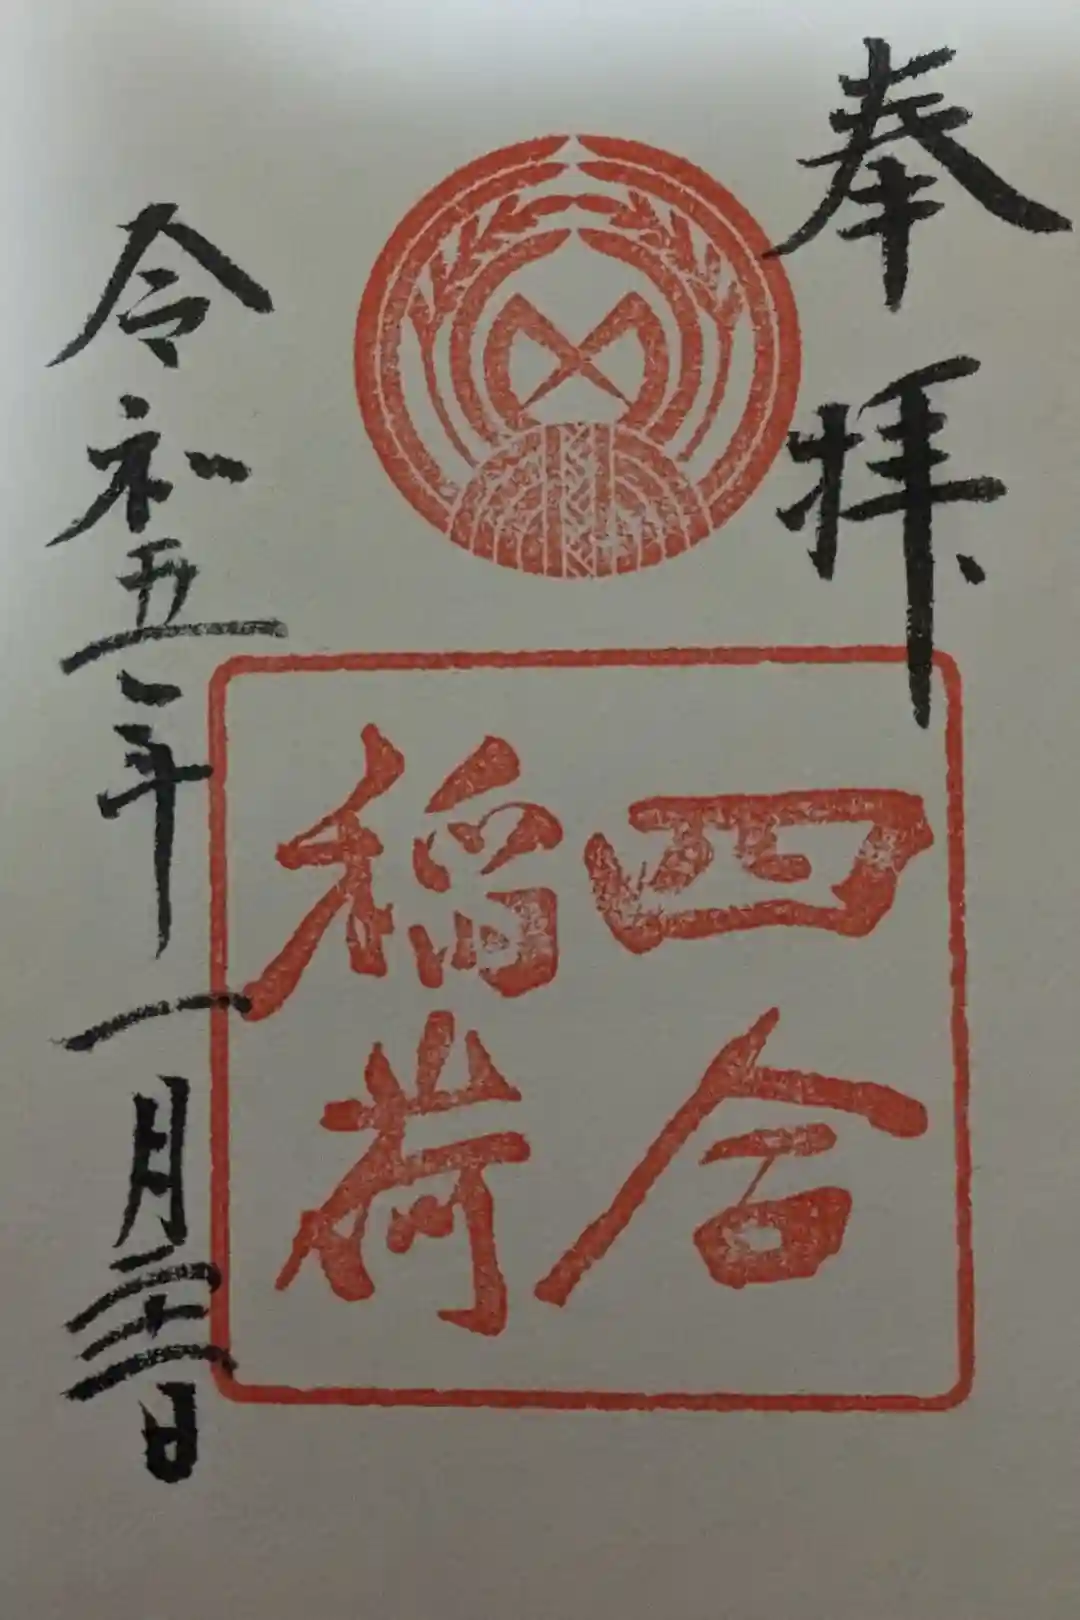 奉拝
四合
稲荷
令和五年一月二十三日